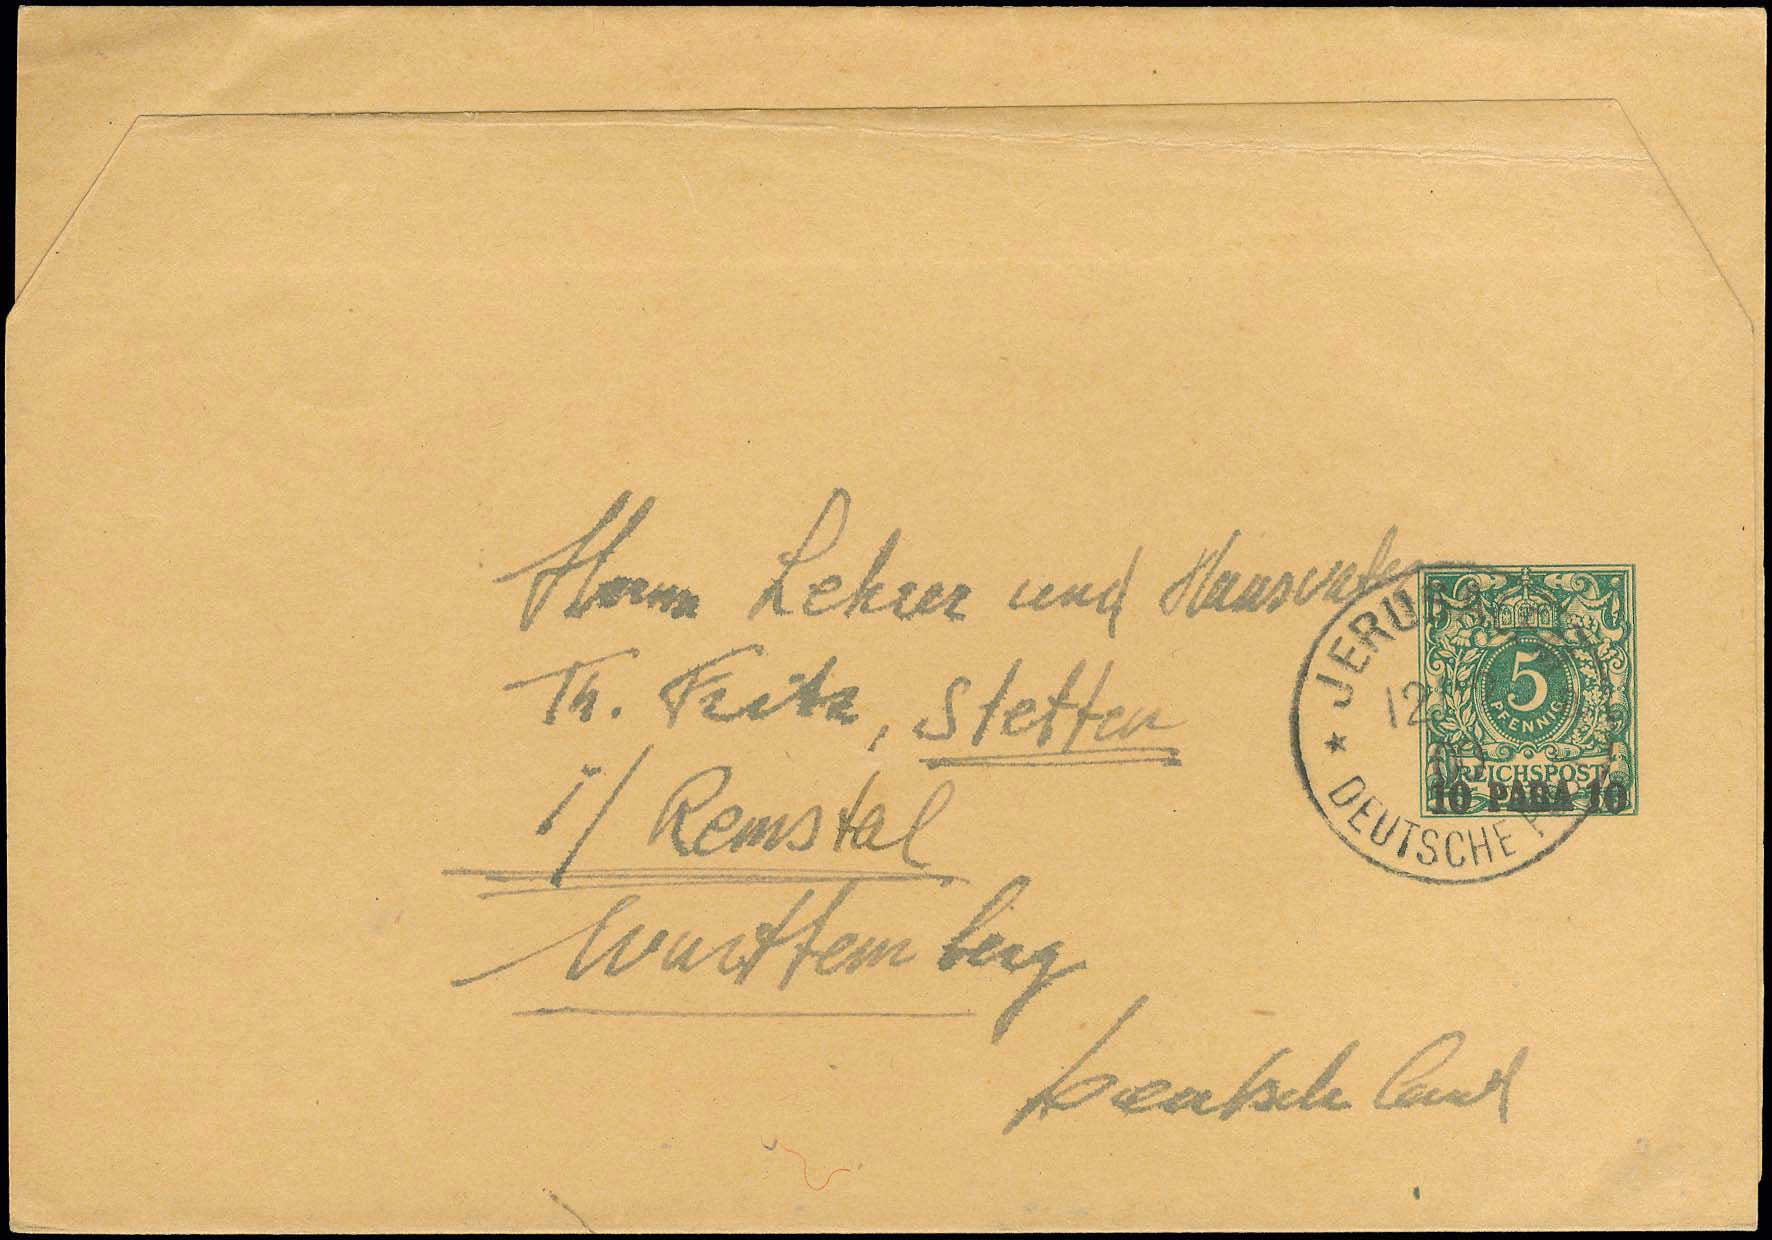 Herrn Lehrer und Hausvater
Th. Fritz, Stetten
i/ Remstal
Württemberg
Deutschland
JERUSALEM
12
00
DEUTSCHE POST
5
PFENNIG
REICHSPOST
10 PARA 10